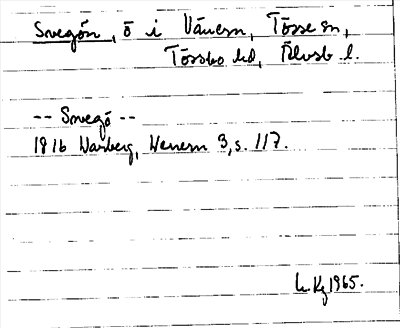 Snegön, ö i Vänern, Tösse sn,
Tössbo hd, Älvsb l.
-- Snegö --
1916 Warberg, Wenern 3, s. 117.
Kg 1965.